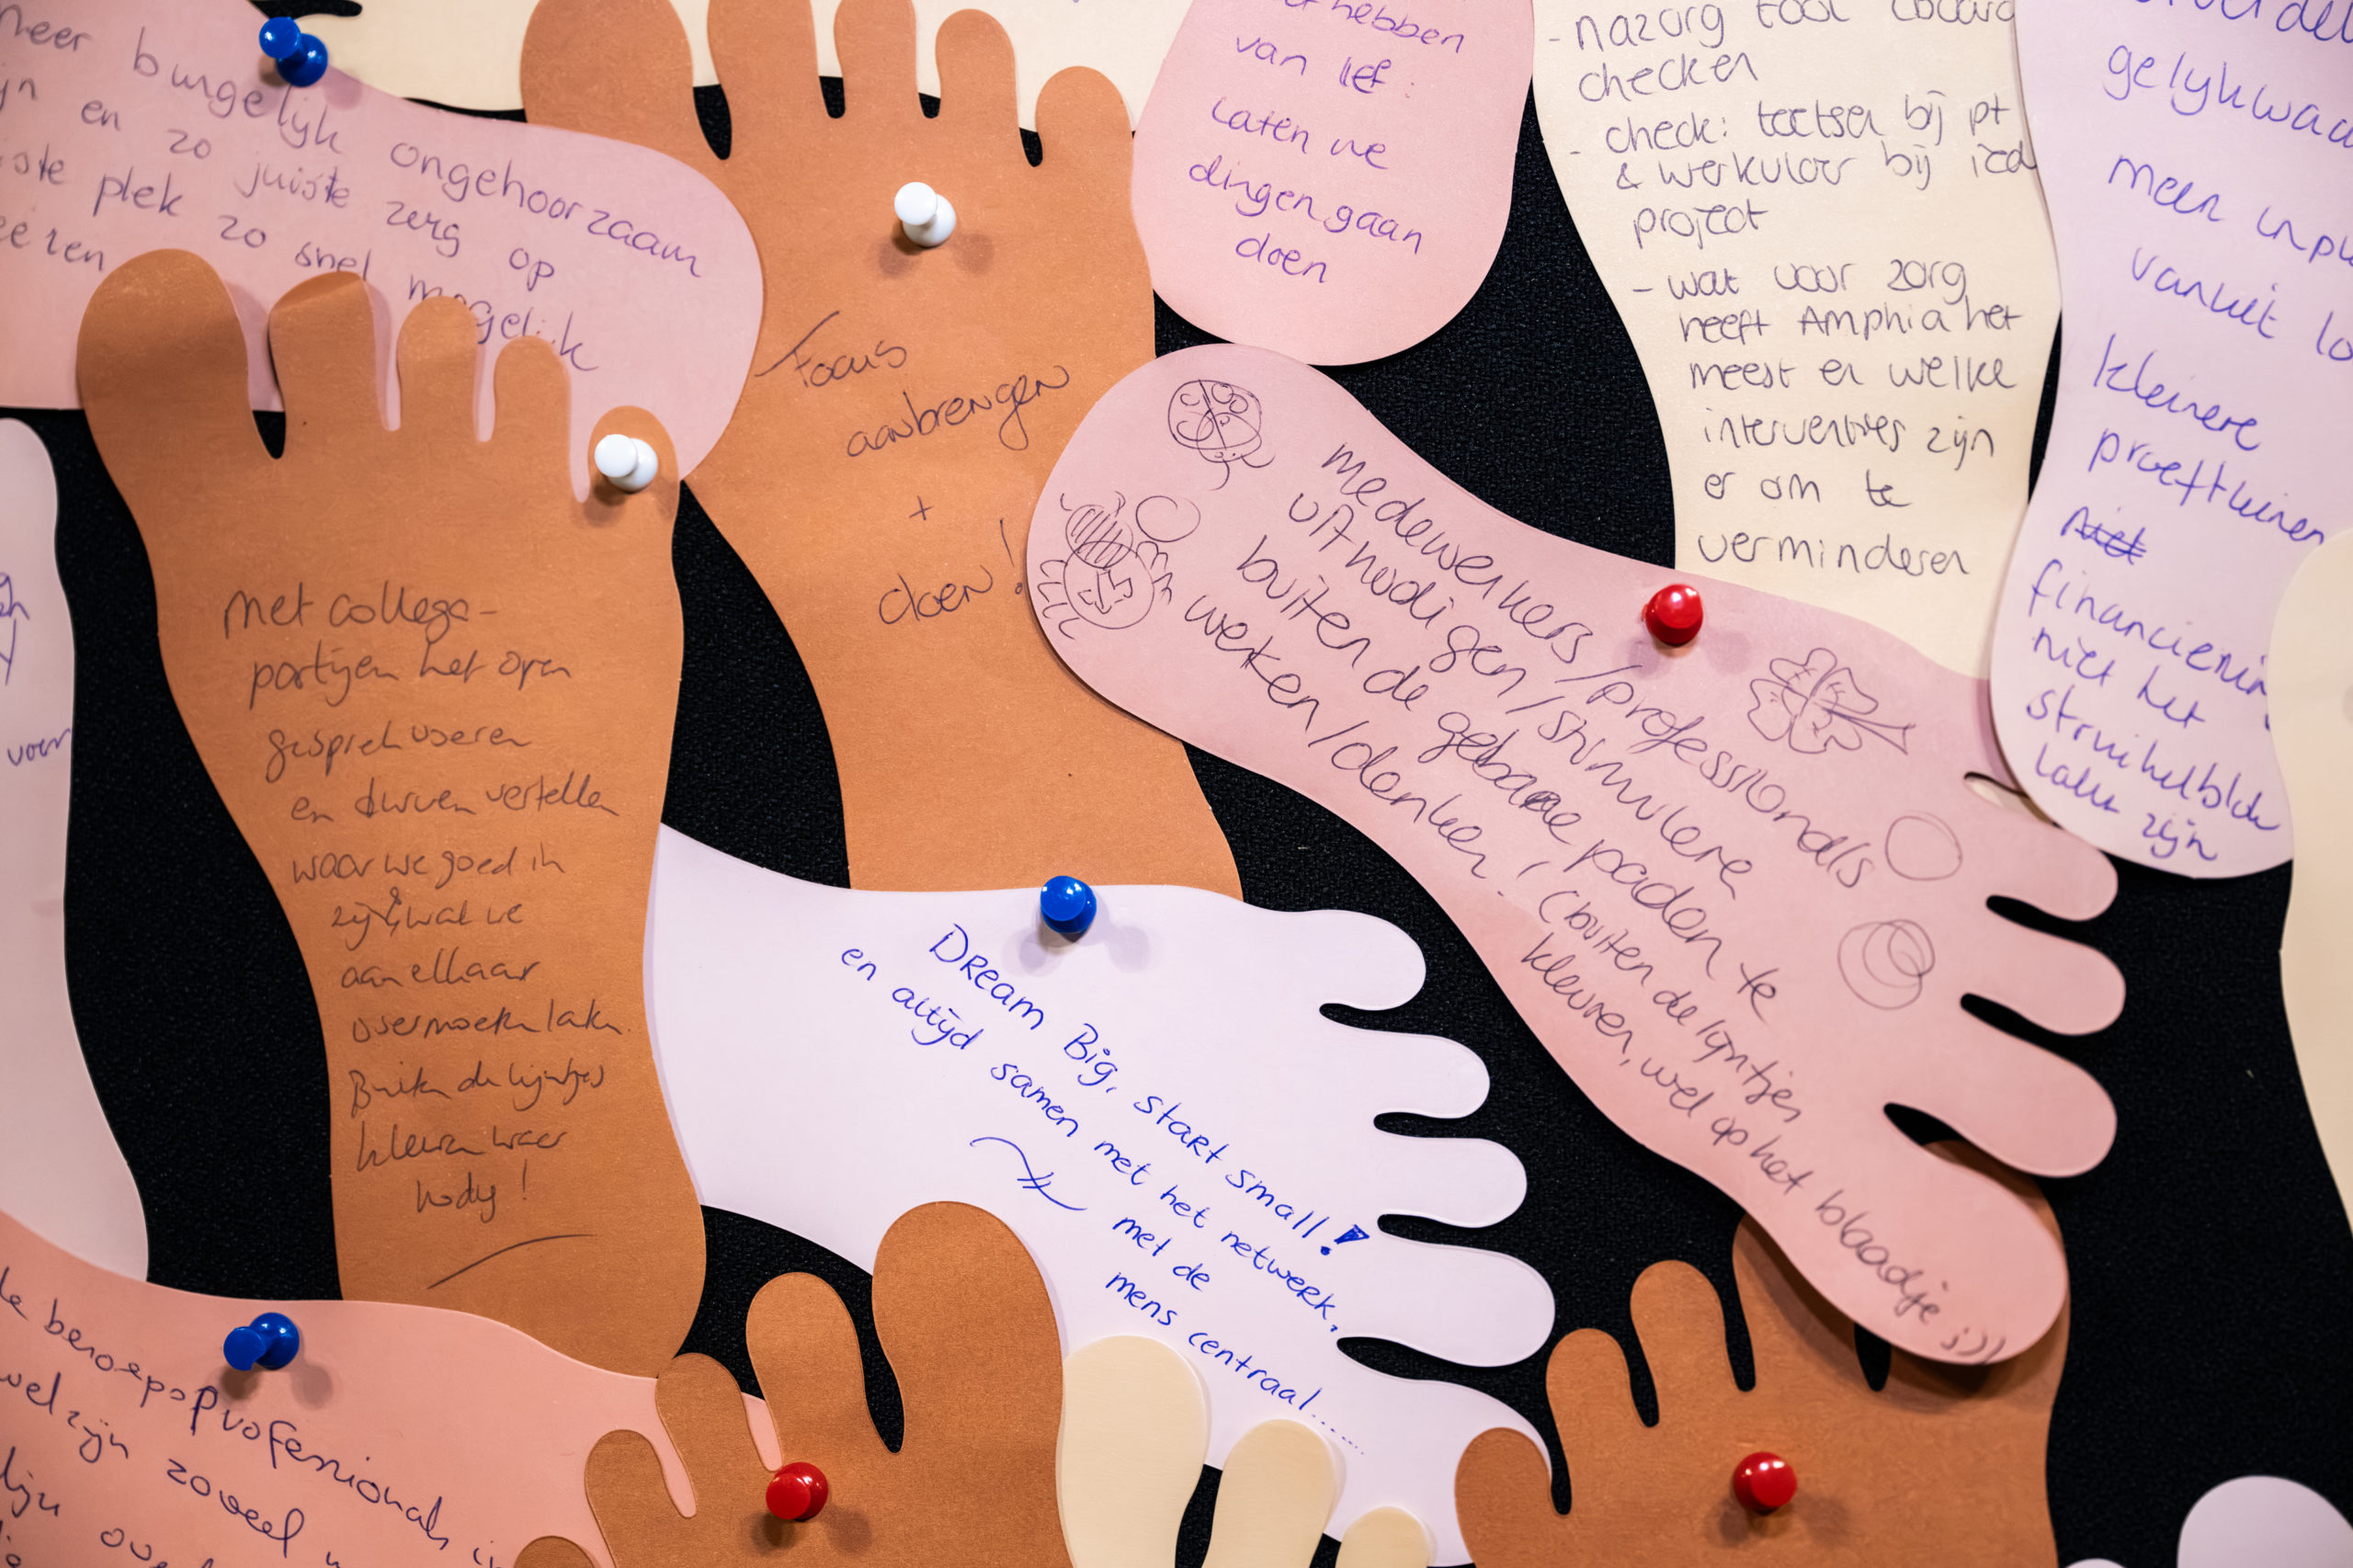 meer burgelijk ongehoorzaam
en zo juiste zorg op
plek zo snel mogelijk
Focus
aanbrengen
+
doen!
hebben
van lef:
Laten we
dingen gaan
doen
- nazorg tool
checken
- check: toetsen bij pt
& werkvloer bij
project
- wat voor zorg
heeft Amphia het
meest en welke
interventies zijn
er om te
verminderen
meer
vanuit
kleinere
proeftuinen
niet het
zijn
met collega-
partijen het open
gesprek voeren
en durven vertellen
waar we goed in
zijn & wat we
aan elkaar
overmoeten laten.
Buiten de lijntjes
kleuren waar
nodig!
medewerkers/professionals
uitnodigen/stimulere
buiten de gebaande paden te
werken/denken! (buiten de lijntjes
kleuren, wel op het blaadje ;))
Dream Big, start small!
en altijd samen met het netwerk,
met de
mens centraal......
voor
beroepsprofessionals in
welzijn zoveel